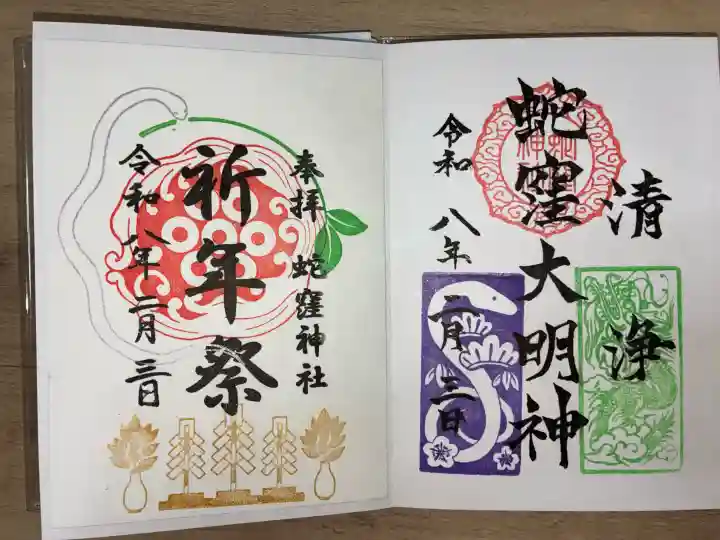 奉拝 蛇窪神社
祈年祭
令和八年二月三日
清浄
蛇窪大明神
令和八年二月三日